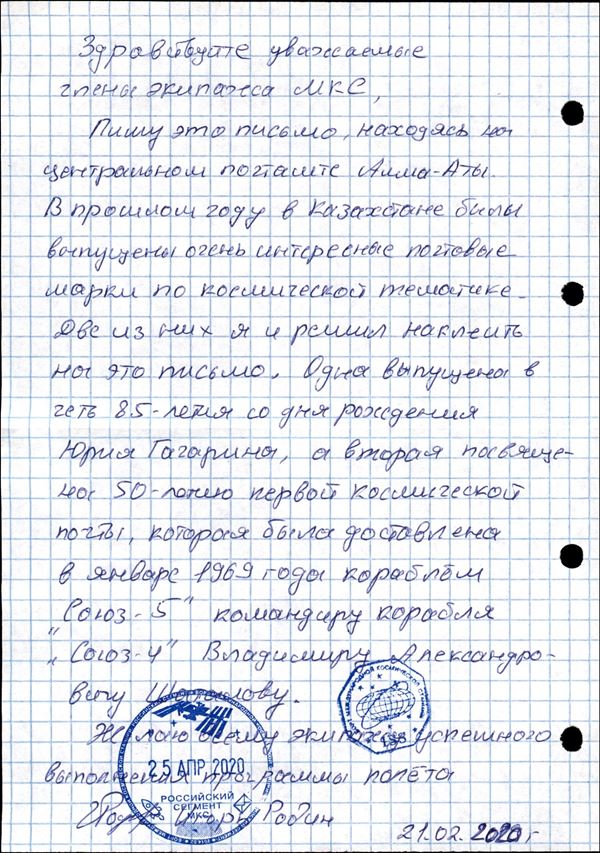 Здравствуйте уважаемые
члены экипажа МКС,
Пишу это письмо, находясь на
центральном почтамте Алма-Аты.
В прошлом году в Казахстане были
выпущены очень интересные почтовые
марки по космической тематике.
Две из них я и решил наклеить
на это письмо. Одна выпущена в
честь 85-летия со дня рождения
Юрия Гагарина, а вторая посвяще-
на 50-летию первой космической
почты, которая была доставлена
в январе 1969 года кораблём
"Союз-5" командиру корабля
"Союз-4" Владимиру Александро-
вичу Шаталову.
Желаю всему экипажу успешного
выполнения программы полёта
25 АПР 2020
РОССИЙСКИЙ
СЕГМЕНТ
МКС
МЕЖДУНАРОДНОЙ КОСМИЧЕСКОЙ СТАНЦИИ
ISS
Игорь Родин
21.02.2020г